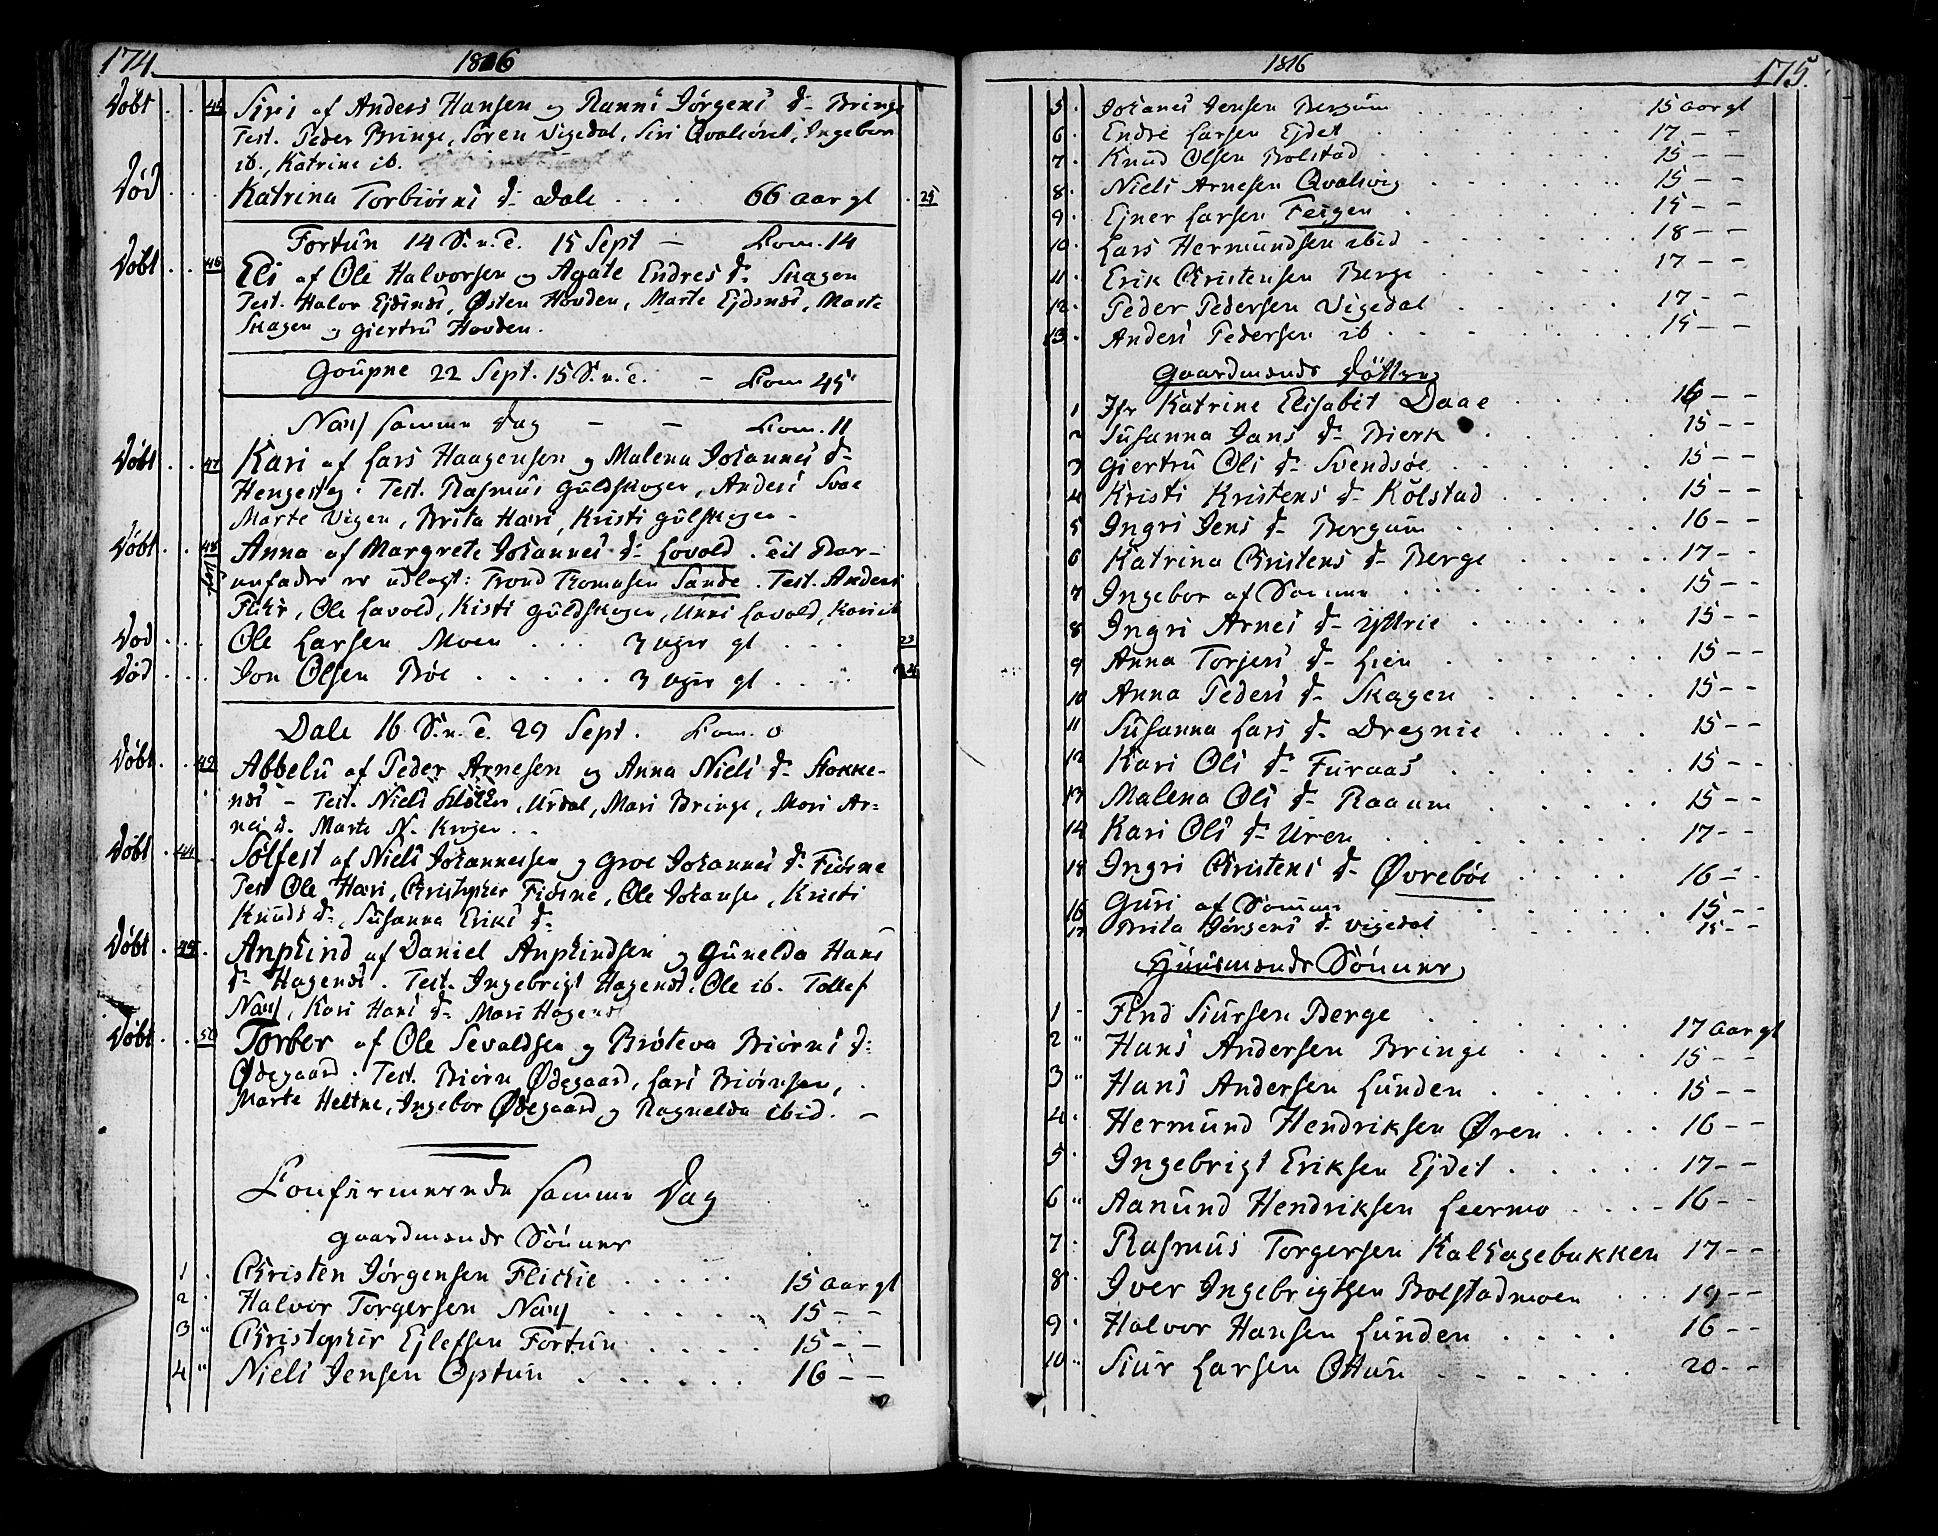 174 1816
Døbt 45 Siri af Anders Hansen og Ranni Jørgens d. Bringe
Test. Peder Bringe, Søren Vigedal, Siri Qvalsøret, Ingebor
ib., Katrine ib.
Død Katrina Torbiørns d. Dale 66 aar gl 25
Fortun 14 S. n. T. 15 Sept — Com. 14
Døbt 46 Eli af Ole Halvorsen og Agate Endres d. Skagen
Test. Halvor Ejdsnes, Østen Hovden, Marte Ejdsnes, Marte
Skagen og Giertru Hovden.
Goupne 22 Sept. 15 S. n. T. — Com 45
Næs samme Dag — — Com. 11
Døbt 47 Kari af Lars Haagensen og Malena Johannes d.
Hengesteg: Test. Rasmus Guldskogen, Anders Svae
Marte Vigen, Brita Hari, Kristi Gulskogen -
Døbt 48 Anna af Margrete Johannes d. Lovold. Til Bar-
nefader er udlagt: Trond Tomasen Sande. Test. Anders
Fuhr, Ole Lavold, Kisti Guldskogen, Unni Lavold, Kari ib
Død Ole Larsen Moen 3 uger gl 23
Død Jon Olsen Bøe 3 uger gl
Dale 16 S. n. T. 29 Sept. Com. 0
Døbt 49 Abbelu af Peder Arnesen og Anna Niels d. Stokke-
nes - Test. Niels Urdal, Mari Bringe, Mari Ar-
nes d. Marte N. Kroken
Døbt 44 Sølfest af Niels Johannessen og Groe Johannes d. Fiøsne
Test Ole Hari, Christopher Fiøsne, Ole Johansen, Kristi
Knuds d., Susanna Eriks d.
Døbt 45 Anphind af Daniel Anphindsen og Gunelda Hans
d. Hagenes. Test. Ingebrigt Hagenes, Ole ib. Tollef
Næs, Kari Hans d. Mari Hagenes
Døbt 50 Torber af Ole Sevaldsen og Brøteva Biørns d.
Ødegaard: Test. Biørn Ødegaard, Lars Biørnsen,
Marte Heltne, Ingebor Ødegaard og Ragnelda ibid. —
Confirmerede samme Dag
Gaardmænds Sønner
1 Christen Jørgensen Flickie 15 aar gl
2 Halvor Torgersen Næs 15 - -
3 Christopher Ejlefsen Fortun 15 - -
4 Niels Jensen Optun 16 - -
1816 175
5 Johanes Jensen Bergum 15 aar gl
6 Endre Larsen Ejdet 17 - -
7 Knud Olsen Bolstad 15 - -
8 Niels Arnesen Qvalsvig 15 - -
9 Ejner Larsen Feigen 15 - -
10 Lars Hermundsen ibid 18 - -
11 Erik Christensen Berge 17 - -
12 Peder Pedersen Vigedal 17 - -
13 Anders Pedersen ib 15 - -
Gaardmænds Døttre
1 Jfr Katrine Elisabet Daae 16 - -
2 Susanna Jans d. Bierk 15 - -
3 Giertru Ols d. Svendsøe 15 - -
4 Kristi Kristens d. Kolstad 15 - -
5 Ingri Jens d. Bergum 16 - -
6 Katrina Christens d. Berge 17 - -
7 Ingebor af Somme 15 - -
8 Ingri Arnes d. Yttrie 15 - -
9 Anna Torjers d. Lien 15 - -
10 Anna Peders d. Skagen 15 - -
11 Susanna Lars d. Dregnie 15 - -
12 Kari Ols d. Furaas 15 - -
13 Malena Ols d. Raaum 15 - -
14 Kari Ols d. Uren 17 - -
15 Ingri Christens d. Øvrebøe 16 - -
16 Guri af Somme 15 - -
17 Brita Jørgens d. Vigedal 15 - -
Huusmænds Sønner
1 Find Siursen Berge 17 aar gl
2 Hans Andersen Bringe 15 - -
3 Hans Andersen Lunden 15 - -
4 Hermund Hendriksen Øren 16 - -
5 Ingebrigt Eriksen Ejdet 17 - -
6 Aamund Hendriksen Leermo 16 - -
7 Rasmus Torgersen Kalhagebakken 17 - -
8 Iver Ingebrigtsen Bolstadmoen 19 - -
9 Halvor Hansen Lunden 16 - -
10 Siur Larsen Ottun 20 - -